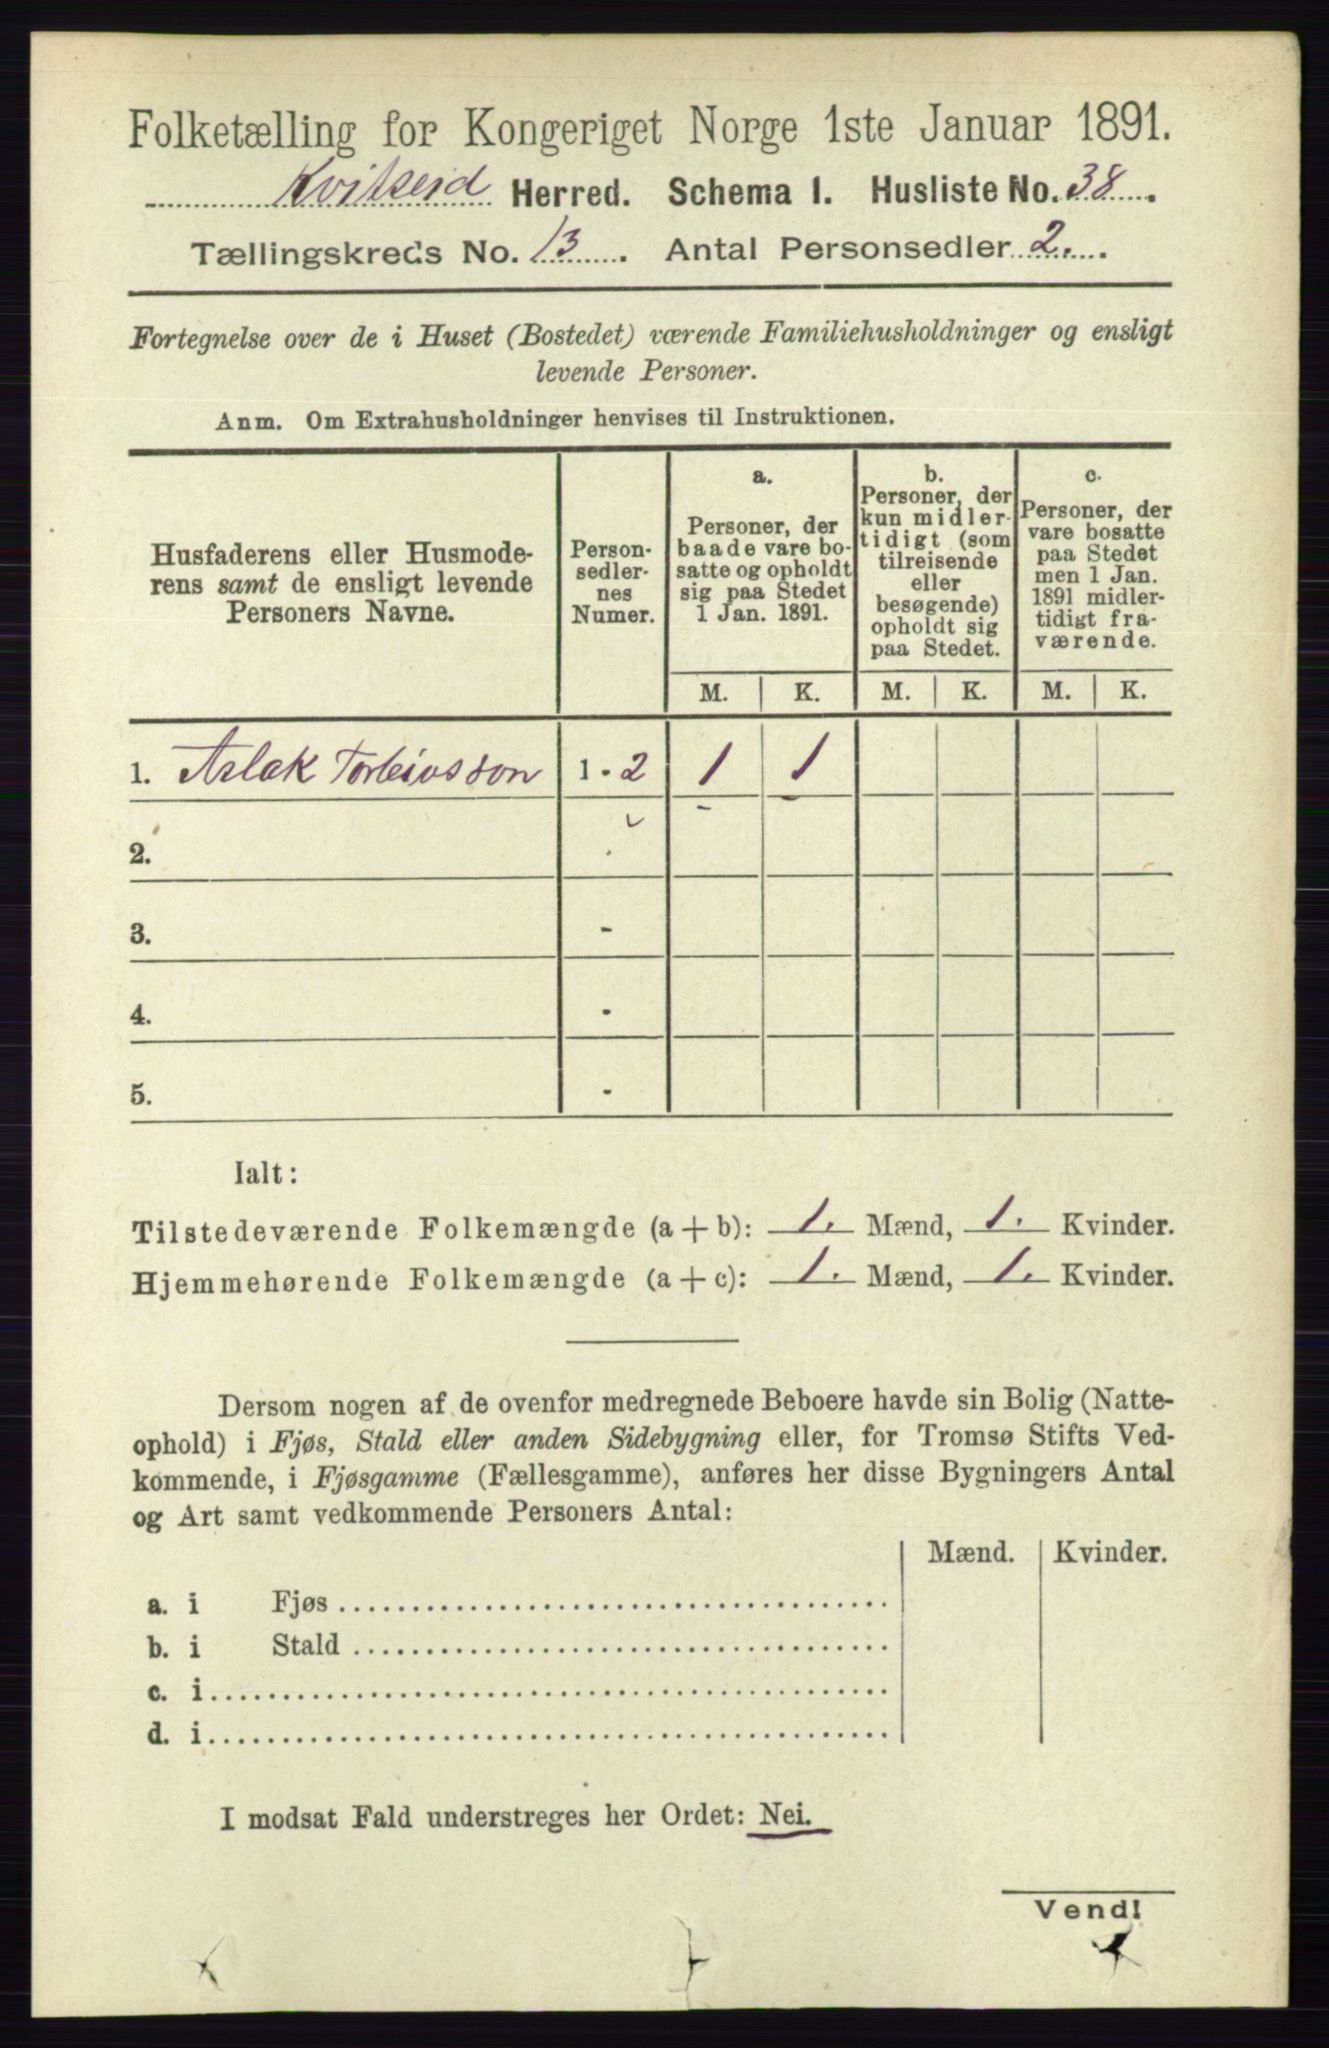 Folketælling for Kongeriget Norge 1ste Januar 1891.
Kvitseid Herred. Schema I. Husliste No. 38.
Tællingskreds No. 13. Antal Personsedler 2.
Fortegnelse over de i Huset (Bostedet) værende Familiehusholdninger og ensligt
levende Personer.
Anm. Om Extrahusholdninger henvises til Instruktionen.
Husfaderens eller Husmode-
rens samt de ensligt levende
Personers Navne.
Person-
sedler-
nes
Numer.
a.
Personer, der
baade vare bo-
satte og opholdt
sig paa Stedet
1 Jan. 1891.
b.
Personer, der
kun midler-
tidigt (som
tilreisende
eller
besøgende)
opholdt sig
paa Stedet.
c.
Personer, der
vare bosatte
paa Stedet
men 1 Jan.
1891 midler-
tidigt fra-
værende.
M. K. M. K. M. K.
1. Aslak Torleivsson 1 - 2 1 1
2.
3. -
4. -
5. -
Ialt:
Tilstedeværende Folkemængde (a + b): 1. Mænd, 1. Kvinder.
Hjemmehørende Folkemængde (a + c): 1. Mænd, 1. Kvinder.
Dersom nogen af de ovenfor medregnede Beboere havde sin Bolig (Natte-
ophold) i Fjøs, Stald eller anden Sidebygning eller, for Tromsø Stifts Ved-
kommende, i Fjøsgamme (Fællesgamme), anføres her disse Bygningers Antal
og Art samt vedkommende Personers Antal:
Mænd. Kvinder.
a. i Fjøs
b. i Stald
c. i
d. i
I modsat Fald understreges her Ordet: Nei.
Vend!